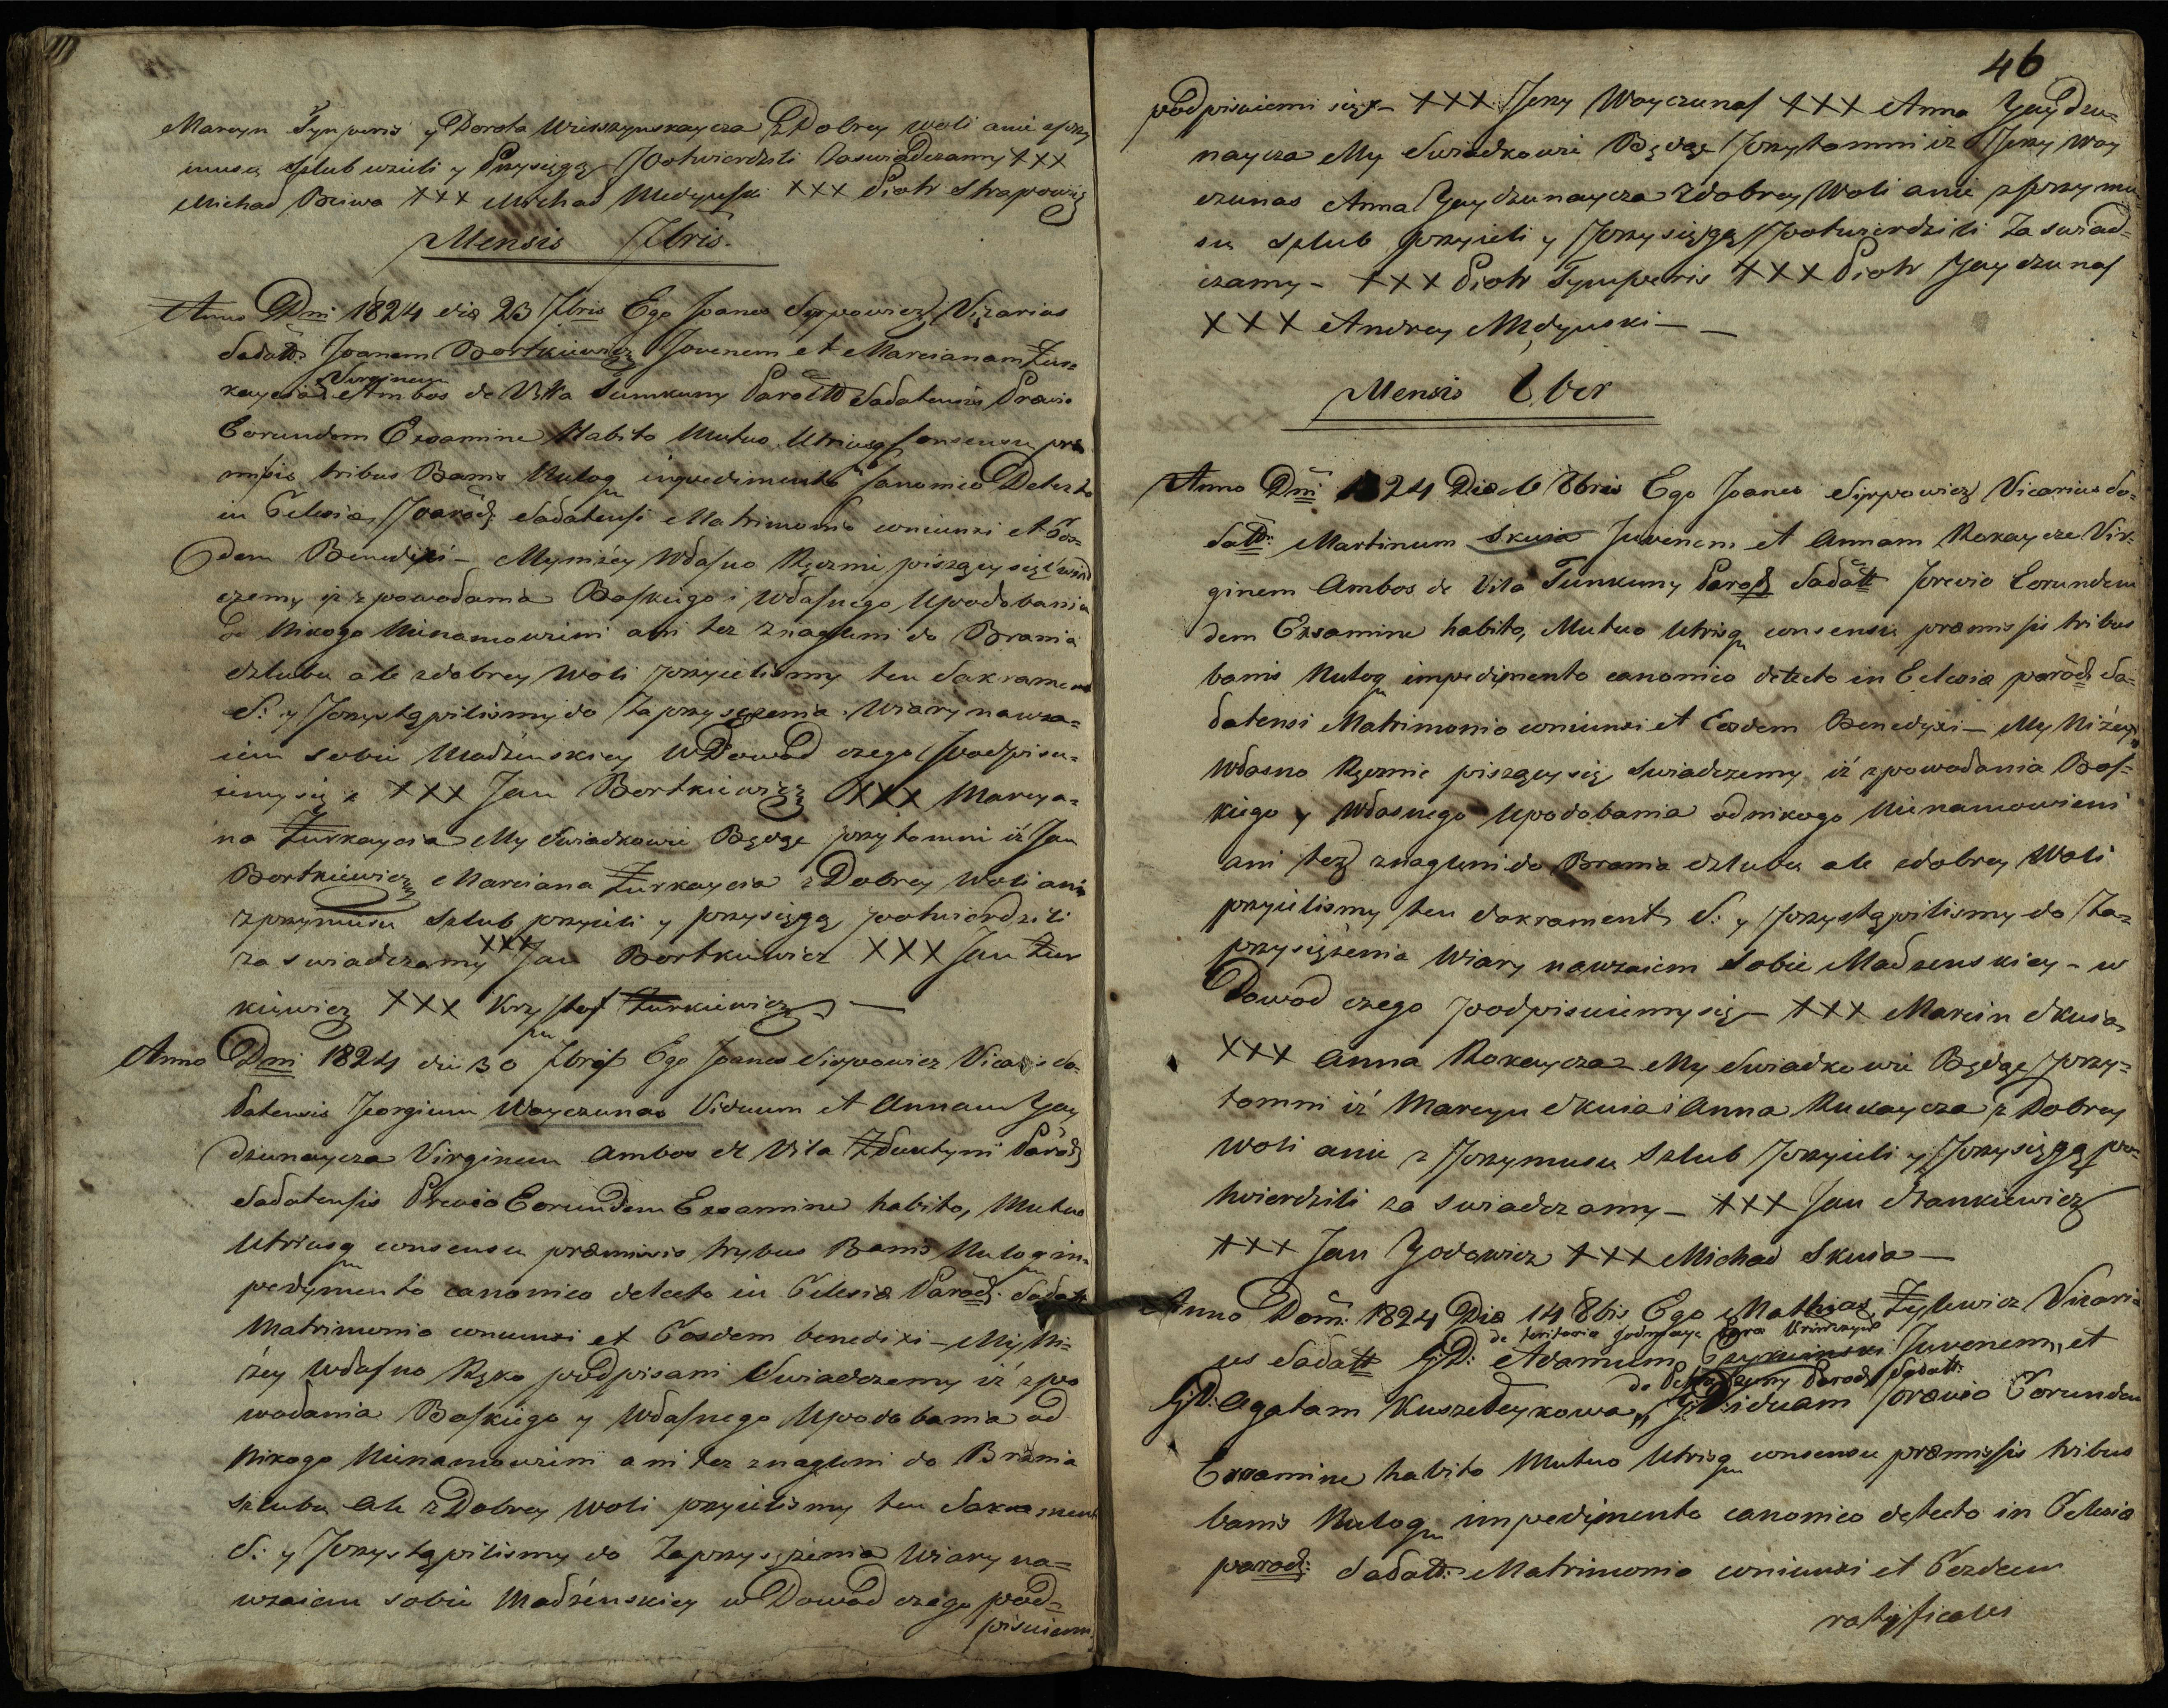 Marcyn Tynperis y Dorota Wirszynskaycza z Dobrey woli anie z przy
musu szlub wzieli y Przysięgą Potwierdzili Zaswiadczamy XXX
Michał Beiwa XXX Michał Medynski XXX Piotr Strapowicz
Mensis 7bris.
Anno Dni 1824 die 23 7bris Ego Joanes Syrpowicz Vicarius
Sadatt: Joanem Bortkiewicz Juvenem et Marcianam Żur=
kaycia Virginem Ambos de Villa Sumkuny Paroch Sadatensis Previo
Eorundem Exsamine Habito Mutuo Utriusq Consensu pre
missis tribus Banis Nuloq impedimento Canonico Detecto
in Eclesia Paroch: Sadatensi Matrimonio coniunxi et Eos=
dem Benedixi – My niżey Własno Ręcznie piszący się świad
czemy iż z powodania Boskiego i Własnego Upodobania
od Nikogo Nienamowieni ani tez znagleni do Brania
szlubu ale z dobrey Woli przyieliśmy ten Sakrament
S: y Przystąpiliśmy do Zaprzysężenia Wiary nawza=
iem sobie Madżeńskiey W Dowod czego Podpisu=
iemy się XXX Jan Bortkiewicz XXX Marcya=
na Żurkaycia My Swiadkowie Będąc przytomni iż Jan
Bortkiewicz Marciana Żurkaycia z Dobrey Woli ani
z przymusu Szlub przyieli y przysięgą potwierdzili
za swiadczamy XXX Jan Bortkiewicz XXX Jan Żur
kiewicz XXX Krzysztof Żurkiewicz –
Anno Dni 1824 die 30 7bris Ego Joanes Sirpowicz Vicaris Sa=
datensis Georgium Woyczunas Viduum et Annam Jay
dzunaycza Virginem Ambos de Vila Zduktyni Paroch
Sadatensis Previo Eorundem Exsamine habito, Mutuo
Utriusq consensu premissis trybus Banis Nuloq im=
pedymento canonico detecto in Eclesia Paroch: Sadatt
Matrimonio coniunxi et Eosdem benedixi – My Ni=
żey Własno Ręko podpisani Swiadczemy iż z po
wodania Boskiego y Własnego Upodobania od
Nikogo Nienamowieni ani tez znagleni do Brania
szlubu Ale z Dobrey Woli przyieliśmy ten Sakrament
S: y Przystąpiliśmy do Zaprzysężenia Wiary na=
wzaiem sobie Madżeńskiey w Dowod czego pod=
pisuiem
46
podpisuiemi się – XXX Jerzy Woyczunas XXX Anna Jaydzu=
naycza My Swiadkowie Będąc przytomni iż Jerzy Woy
czunas Anna Jaydzunaycza z dobrey Woli anie z przymu
su Szlub przyieli y Przysięgą Potwierdzili Zaswiad=
czamy – XXX Piotr Tynperis XXX Piotr Jayczunas
XXX Andrey Medynski – –
Mensis 8ber
Anno Dni 1824 Die 6 8bris Ego Joanes Syrpowicz Vicarius Sa=
datt: Martinum Skuia Juvenem et Annam Rokaycze Vir=
ginem Ambos de Vila Tunkuny Paroch Sadatt previo Eorundem
dem Exsamine habito, Mutuo Utrisq consensu premissis tribus
banis Nuloq impedymento canonico detecto in Eclesia paroch Sa=
datensi Matrimonio coniunxi et Eosdem Benedyxi – My Niżey
Własno Ręcznie piszący się Swiadczemy iż z powodania Bos=
kiego y Własnego Upodobania od nikogo Nienamowieni
ani tez znagleni do Brania szlubu ale zdobrey Woli
przyieliśmy ten Sakrament S: y Przystąpiliśmy do Za=
przysiężenia Wiary nawzaiem Sobie Madzenskiey – w
Dowod czego podpisuiemy się – XXX Marcin Skuia
XXX Anna Rokaycza – My Swiadkowie Będąc Przy=
tomni iż Marcyn Skuia i Anna Rukaycza z Dobrey
Woli anie z Przymusu Szlub Przyieli y Przysięgą po=
twierdzili za swiadczamy – XXX Jan Stankiewicz
XXX Jan Jodowicz XXX Michał Skuia –
Anno Dom: 1824 Die 14 8bis Ego Mathias Żylewicz Vicari
de teritoria Para
us Sadatt GD: Adamum Juvenem, et
de Paroch Sadatt:
GD: Agatam Kuszeleykowa, GViduam previo Eorundem
Exsamine habito Mutuo Utrisq consensu premissis tribus
banis Nuloq impedymento canonico detecto in Eclesia
paroch: Sadatt: Matrimonio coniunxi et Eosdem
ratyficavi